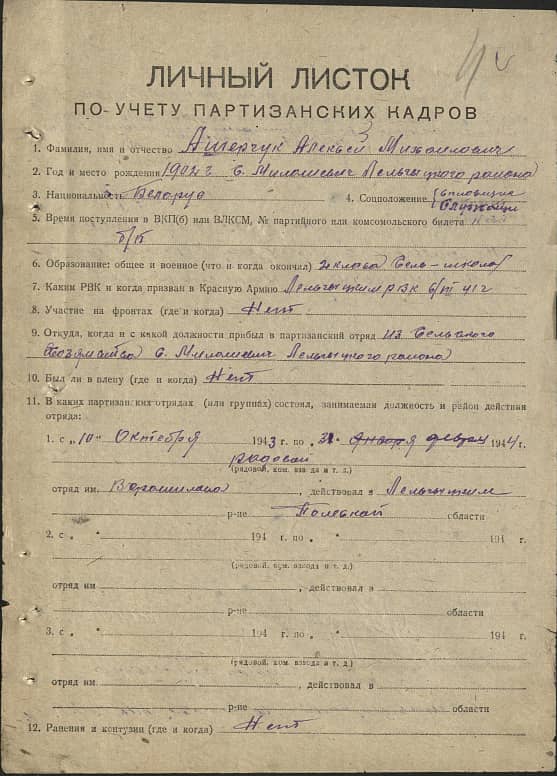 ЛИЧНЫЙ ЛИСТОК
ПО УЧЕТУ ПАРТИЗАНСКИХ КАДРОВ
1. Фамилия, имя и отчество Ашерчук Алексей Михайлович
2. Год и место рождения 1902 г с. Милошевич Лельчицкого района
3. Национальность Белорус 4. Соцположение служащий
5. Время поступления в ВКП(б) или ВЛКСМ, № партийного или комсомольского билета
б/п
6. Образование: общее и военное (что и когда окончил) 2 класса Сель-школы
7. Каким РВК и когда призван в Красную Армию Лельчытким РВК 41 г
8. Участие на фронтах (где и когда) Нет
9. Откуда, когда и с какой должности прибыл в партизанский отряд из Сельского
Хозяйства с. Милошевич Лельчыцкого района
10. Был ли в плену (где и когда) Нет
11. В каких партизанских отрядах (или группах) состоял, занимаемая должность и район действия
отряда:
1. с „10" Октября 1943 г. по „31" января 1944 г.
рядовой
(рядовой, ком. взвода и т. д.)
отряд им. Ворошилова, действовал в Лельчытким
р-не Полеской области
2. с „ " 194 г. по „ " 194 г.
(рядовой, ком. взвода и т. д.)
отряд им , действовал в
р-не области
3. с „ " 194 г. по „ " 194 г.
(рядовой, ком. взвода и т. д.)
отряд им. , действовал в
р-не области
12. Ранения и контузии (где и когда) Нет